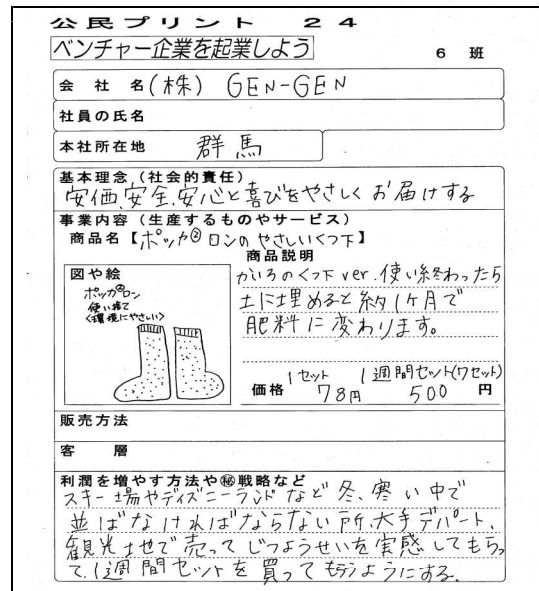 公民プリント 24
ベンチャー企業を起業しよう
6 班
会 社 名 (株) GEN-GEN
社員の氏名
本社所在地 群馬
基本理念(社会的責任)
安価、安全、安心と喜びをやさしくお届けする
事業内容(生産するものやサービス)
商品名【ポッカ㋓ロンのやさしいくつ下】
図や絵
ポッカ㋓ロン
使い捨て
<環境にやさしい>
商品説明
かいろのくつ下ver.使い終わったら
土に埋めると約1ヶ月で
肥料に変わります。
1セット 1週間セット(7セット)
価格 78円 500 円
販売方法
客 層
利潤を増やす方法や㊙戦略など
スキー場やディズニーランドなど冬、寒い中で
並ばなければならない所、大手デパート、
観光土地で売ってじつようせいを実感してもらっ
て、1週間セットを買ってもらうようにする。